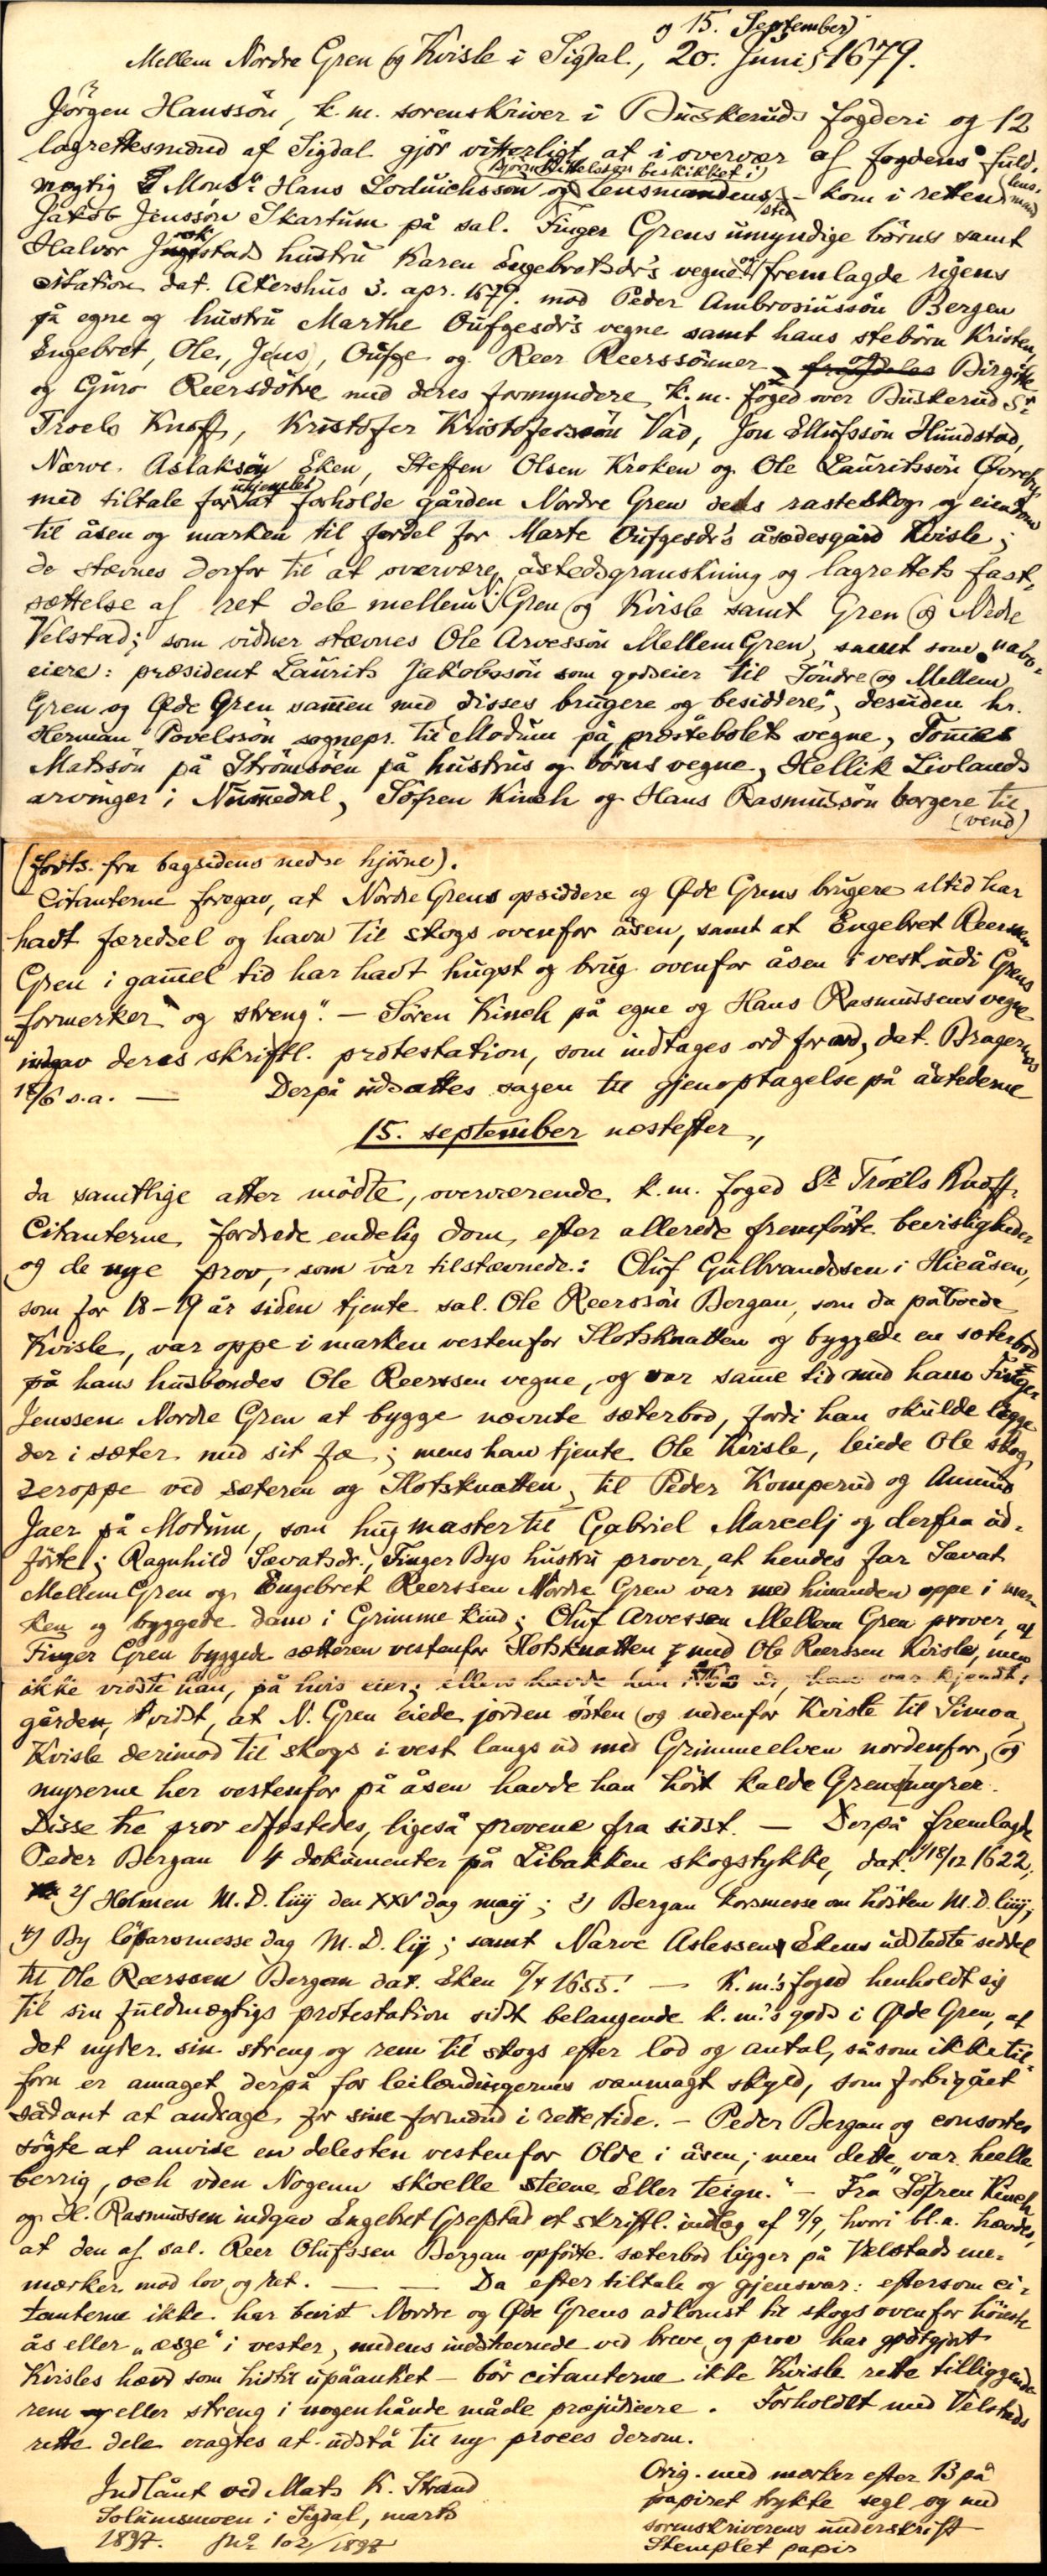 og 15. September
Mellem Nordre Gren og Kvisle i Sigdal., 20. Juni 1679.
Jørgen Hanssön, k. m. sorenskriver i Buskeruds fogderi og 12
lagrettesmænd af Sigdal gjør vitterligt, at i overvær af fogdens fuld-
mægtig Monsr Hans Loduichssøn og Björn Kittelssøn beskikket i lensmandens sted – kom i retten lens-
mand
Jakob Jenssön Skartum på sal. Finger Grens umyndige børns samt
Halvor hustru Karen Engebretsdr's vegne og fremlagde rigens
citation dat. Akershus 3. apr. 1679. mod Peder Ambrosiussön Bergan
på egne og hustru Marthe Oufgesdr's vegne samt hans stebörn Kristen,
Engebret, Ole, Jens, Oufge og Reer Reerssönner, Birgitte
og Guro Reersdötre med deres formyndere k. m. foged over Buskerud Sr
Troels Knoff, Kristofer Kristoferssön Vad, Jon Ellufssön Hundstad,
Narve Aslaksön Eken, Steffen Olsen Kroken og Ole Lauritssön Øvreby
med tiltale for uhjemlet at forholde gården Nordre Gren dens rasteskog og eiendom
til åsen og marken til fordel for Marte Oufgesdr's åsædesgård Kvisle;
de stævnes derfor til at overvære åstedsgranskning og lagrettets fast-
sættelse af ret dele mellem Gren og Kvisle samt Gren og Nedre
Velstad; som vidner stævnes Ole Arvessön Mellem Gren, samt som nabo-
eiere: præsident Laurits Jakobssön som godseier til Söndre og Mellem
Gren og Øde Gren sammen med disses brugere og besiddere, desuden hr.
Herman Povelssön sognepr. til Modum på præstebolets vegne, Tomes
Matssön på Strömsöen på hustrus og börns vegne, Hellik Livlands
arvinger i Numedal, Söfren Kinch og Hans Rasmussön borgere til
(vend)
(forts. fra bagsidens nedre hjörne).
Citanterne foregav, at Nordre Grens opsiddere og Øde Grens brugere altid har
havt færedsel og havn til skogs ovenfor åsen, samt at Engebret Reerssen
Gren i gammel tid har havt hugst og brug ovenfor åsen i vest „udi Grens
formerker og streng". – Sören Kinch på egne og Hans Rasmussens vegne
indgav deres skriftl. protestation, som indtages ord for ord, dat. Bragernæs
18/6 s.a. — Derpå udsattes sagen til gjenoptagelse på åstederne
15. september næstefter,
da samtlige atter mödte, overværende k. m. foged Sr Troels Knoff.
Citanterne fordrede endelig dom, efter allerede fremförte bevisligheder
og de nye prov, som var tilstævnede: Oluf Gulbrandssen i Hieåsen,
som for 18–19 år siden tjente sal. Ole Reerssön Bergan, som da påboede
Kvisle, var oppe i marken vestenfor Slotsknatten og byggede en sæterbod
på hans husbondes Ole Reerssen vegne, og var samme tid med ham Finger
Jenssen Nordre Gren at bygge nævnte sæterbod, fordi han skulde lægge
der i sæter med sit fæ; mens han tjente Ole Kvisle, leiede Ole skog
deroppe ved sæteren og Slotsknatten, til Peder Komperud og Amund
Jaer på Modum, som hug master til Gabriel Marcelj og derfra ud-
förte; Ragnhild Sævatsdr., Finger Bys hustru prover, at hendes far Sævat
Mellem Gren og Engebret Reerssen Nordre Gren var med hinanden oppe i mar-
ken og byggede dam i Grimme kind; Oluf Arvessen Mellem Gren prover, at
Finger Gren byggede sætteren vestenfor Slotsknatten med Ole Reerssen Kvisle, men
ikke vidste han, på hvis eier; ellers havde han år, han var kjendt i
gården, vidst, at N. Gren eiede jorden östen og nedenfor Kvisle til Simoa,
Kvisle derimod til skogs i vest langs ud med Grimmeelven nordenfor, og
myrerne her vestenfor på åsen havde han hört kalde Grensmyrer.
Disse tre prov edfæstedes, ligeså provene fra sidst. — Derpå fremlagde
Peder Bergan 4 dokumenter på Libakken skogstykke, dat. 1) 18/12 1622;
2) Holmen M. D. liij den XXV dag maij; 3) Bergan korsmesse om hösten M. D. liij;
4) By löparsmesse dag M. D. lij; samt Narve Aslessen Ekens udstedte seddel
til Ole Reerssen Bergan dat. Eken 6/4 1655. — K. m.'s foged henholdt sig
til sin fuldmægtigs protestation sidst belangende k. m.'s gods i Øde Gren, at
det nyder sin streng og rem til skogs efter lod og antal, såsom ikke til-
forn er amaget derpå for leilændingernes vanmagt skyld, som forbigået
sådant at andrage for sine formænd i rette tide. – Peder Bergan og consorter
sögte at anvise en delesten vestenfor Olde i åsen; men dette var „heelle
berrig, och vden Nogenn skoelle steene Eller teign." – Fra Söfren Kinch
og H. Rasmussen indgav Engebret Grefstad et skriftl. indlæg af 9/9, hvori bl.a. hævdes,
at den af sal. Reer Olufssen Bergan opförte sæterbod ligger på Velstads me-
mærker mod lov og ret. — — Da efter tiltale og gjensvar: eftersom ci-
tanterne ikke har bevist Nordre og Øde Grens adkomst til skogs ovenfor höieste
ås eller „æsze" i vester, medens indstævnede ved breve og prov har godtgjort
Kvisles hævd som hidtil upåanket – bör citanterne ikke Kvisle rette tilliggende
rem eller streng i nogenhånde måde præjudicere. Forholdet med Velstads
rette dele eragtes at udstå til ny proces derom.
Indlånt ved Mats K. Strand
Solumsmoen i Sigdal, marts
1897. Jno 102/1897
Orig. med mærker efter 13 på
papiret trykte segl og med
sorenskriverens underskrift
Stemplet papir